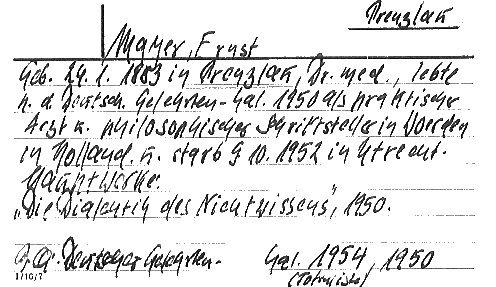 Prenzlau
Mayer, Ernst
Geb. 24. 1. 1883 in Prenzlau, Dr. med., lebte
n. d. Deutsch. Gelehrten-Gal. 1950 als praktischer
Arzt u. philosophischer Schriftsteller in Voerden
in Holland. u. starb 9 10. 1952 in Utrecht.
Hauptwerke:
„Die Dialektik des Nichtwissens", 1950.
Deutscher Gelehrten- Kal. 1954, 1950
(Totenliste)